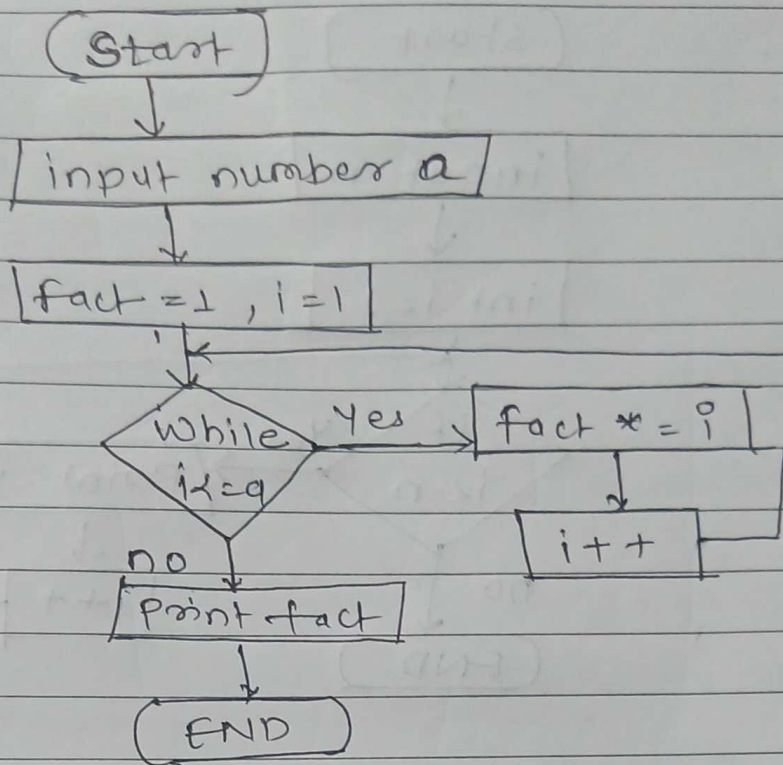 Start
input number a
fact = 1 , i = 1
while
i<=a
Yes
fact * = i
i + +
no
Print fact
END